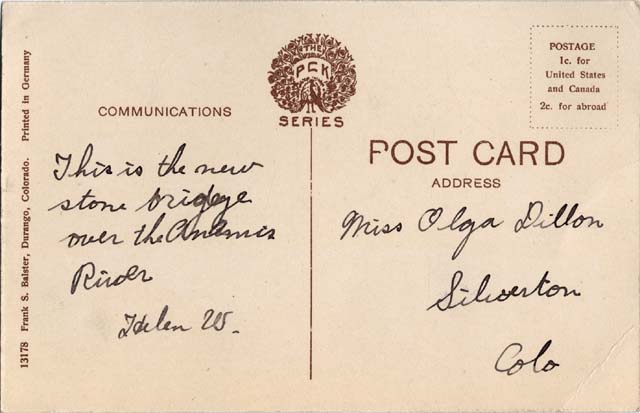 THE
PCK
SERIES
POSTAGE
1c. for
United States
and Canada
2c. for abroad
COMMUNICATIONS
POST CARD
ADDRESS
This is the new
stone bridgge
over the Animis
River
Helen W.
Miss Olga Dillon
Silverton
Colo
13178 Frank S. Balster, Durango, Colorado. Printed in Germany